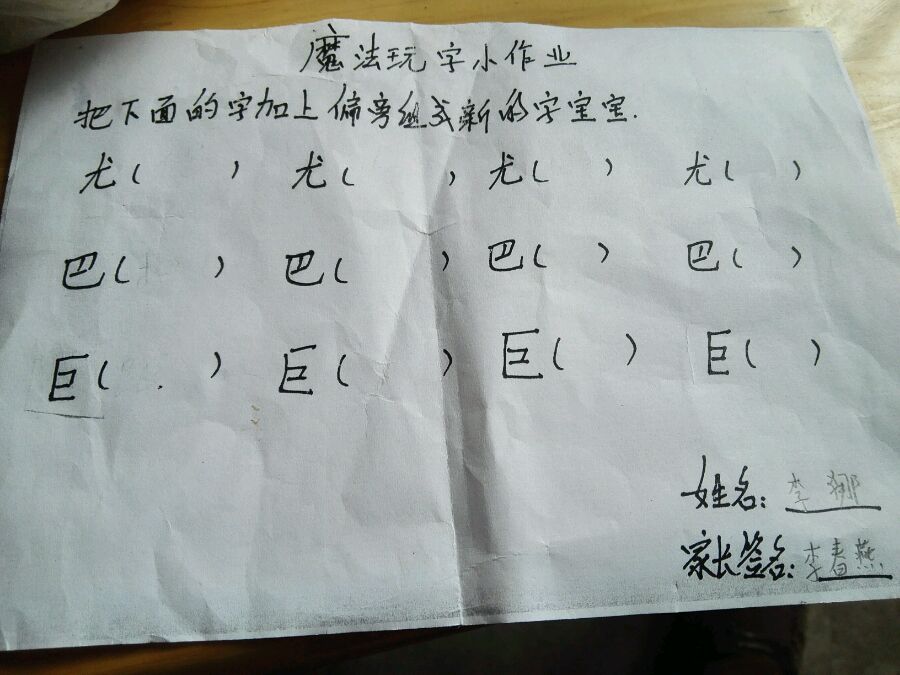 魔法玩字小作业
把下面的字加上偏旁组成新的字宝宝.
尤( ) 尤( ) 尤( ) 尤( )
巴( ) 巴( ) 巴( ) 巴( )
巨( ) 巨( ) 巨( ) 巨( )
姓名: 李娜
家长签名: 李春燕